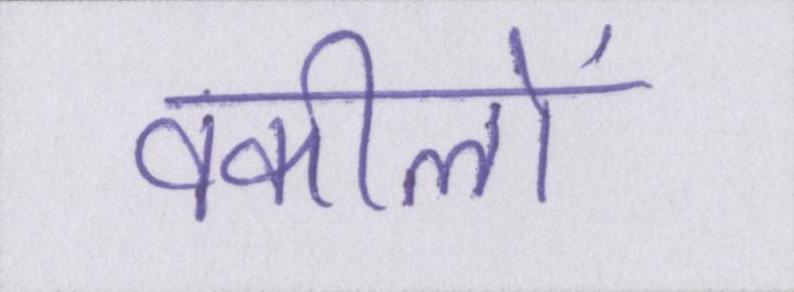 वकीलों